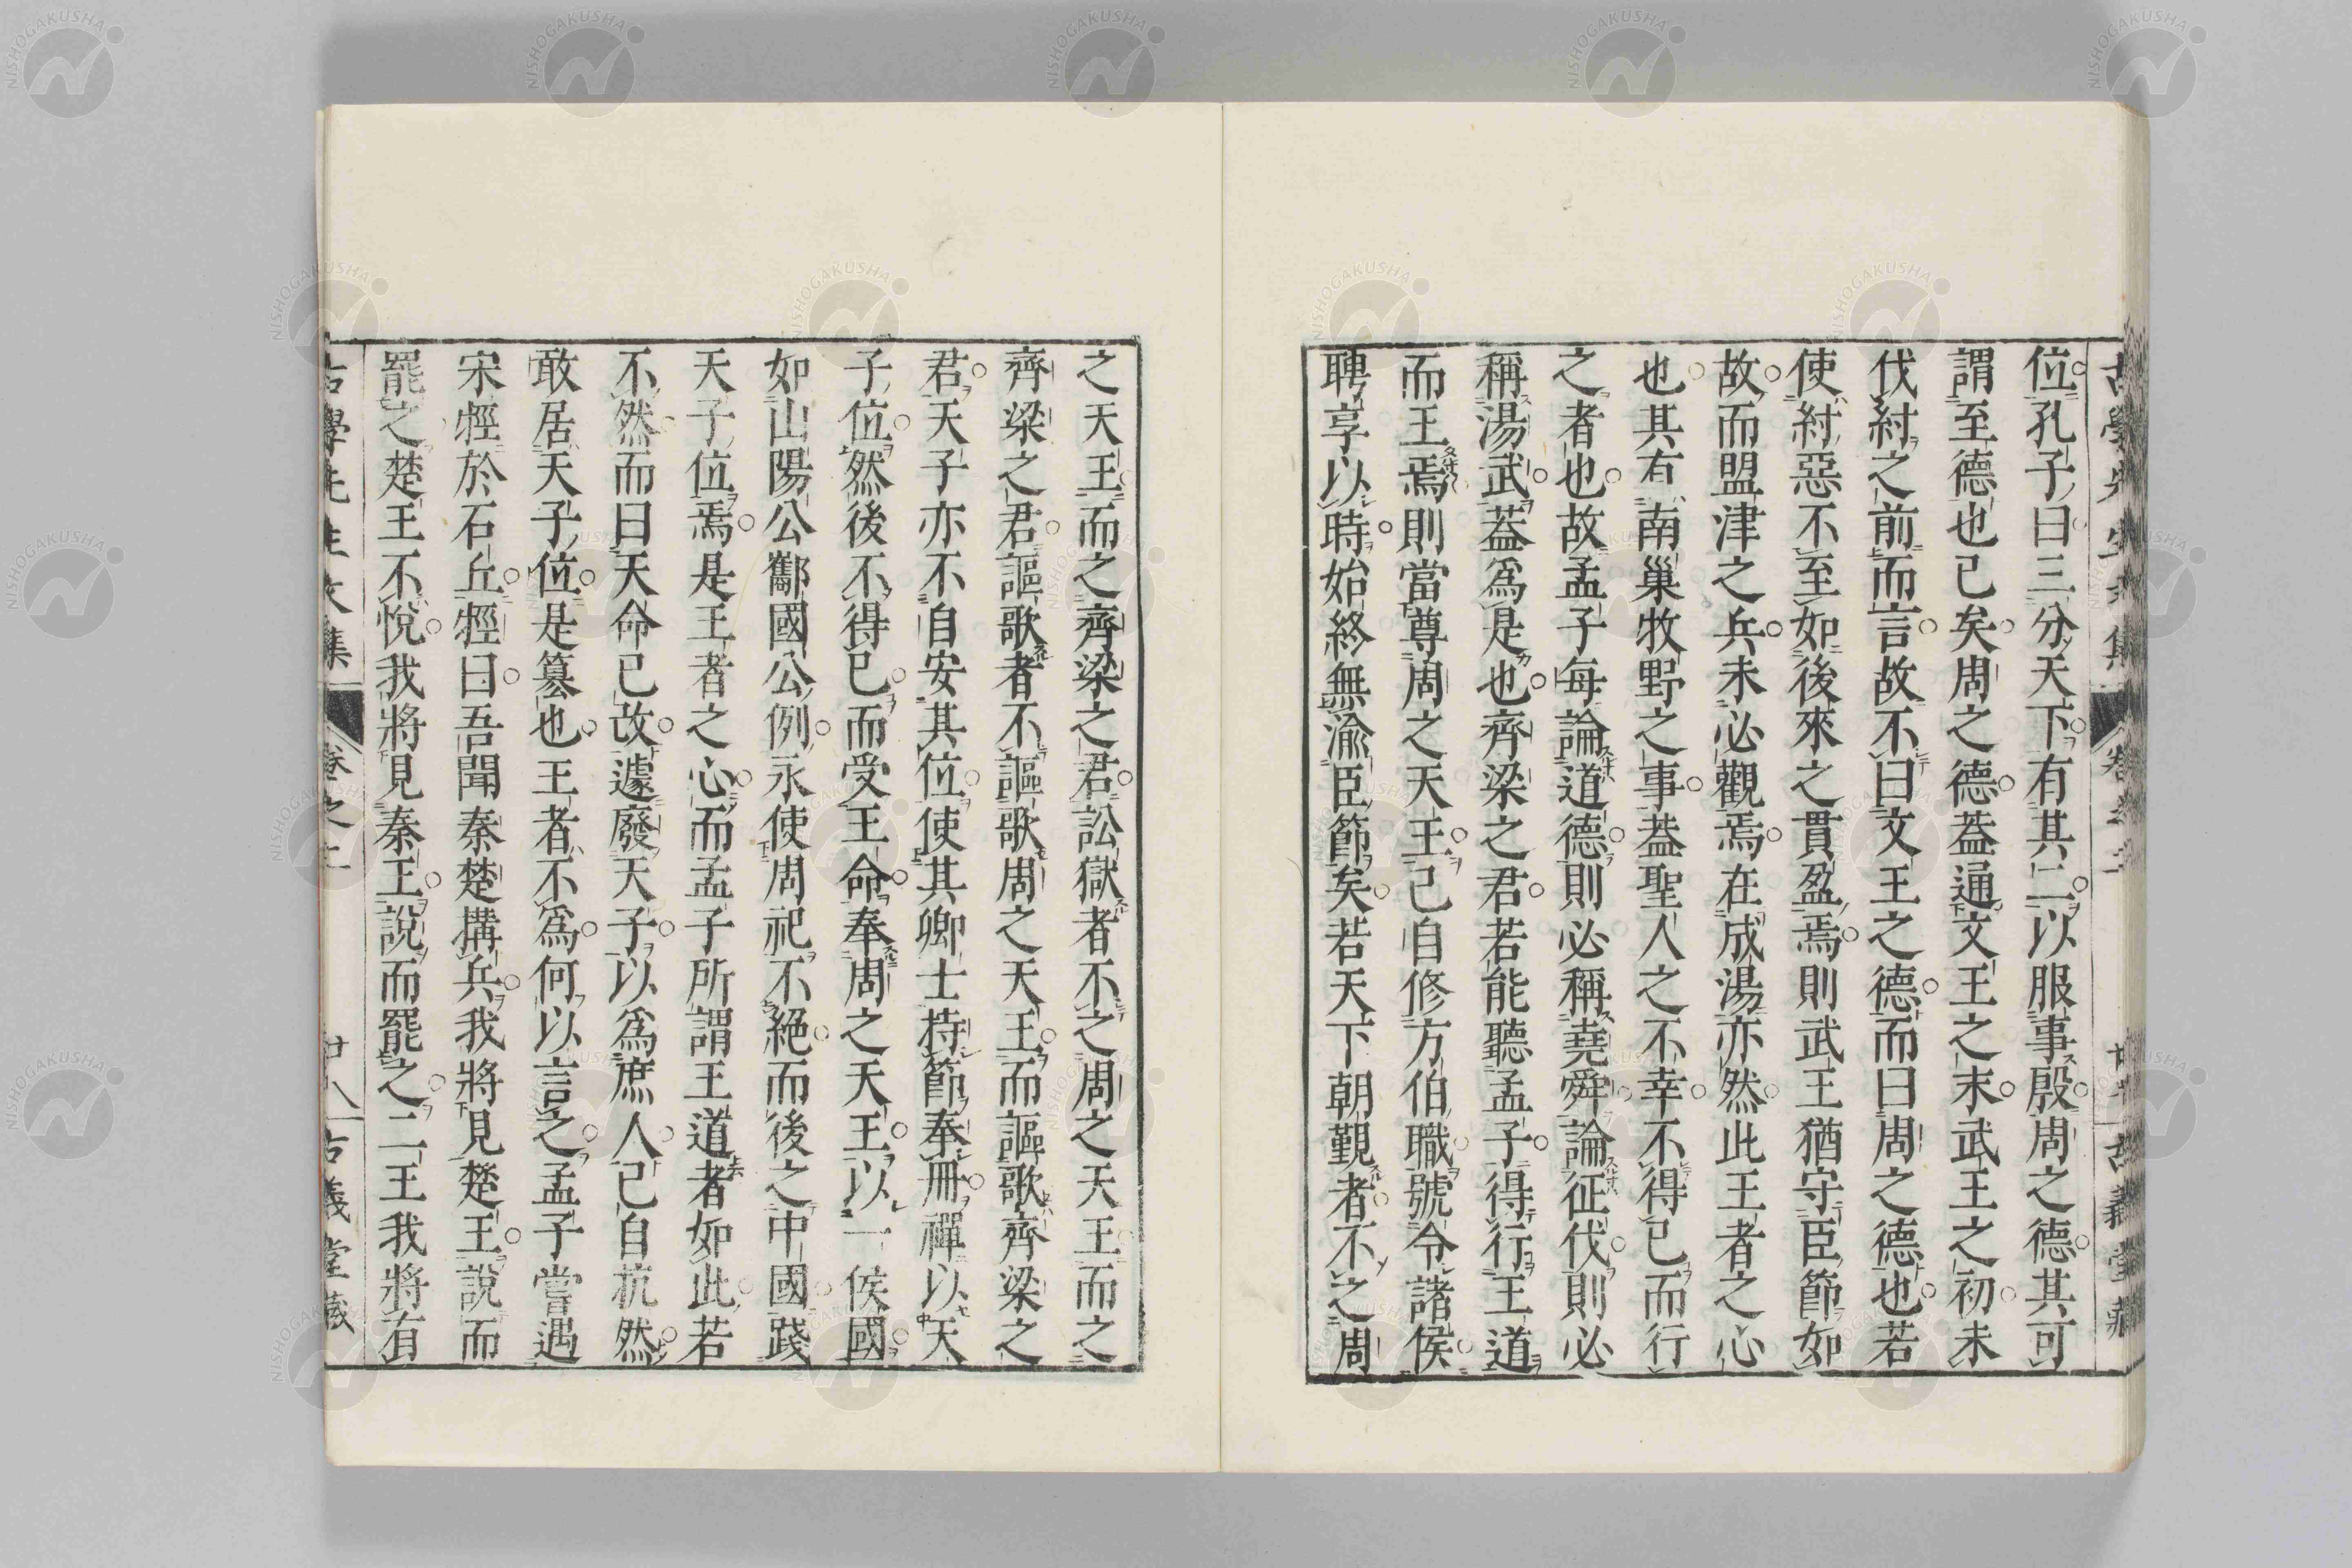 位孔子曰三分天下有其二以服事殷周之德其可
謂至德也已矣周之德葢通文王之末武王之初未
伐紂之前而言故不曰文王之德而曰周之德也若
使紂惡不至如後來之貫盈焉則武王猶守臣節如
故而盟津之兵未必觀焉在成湯亦然此王者之心
也其有南巢牧野之事葢聖人之不幸不得已而行
之者也故孟子每論道德則必稱堯舜論征伐則必
稱湯武葢爲是也齊梁之君若能聽孟子得行王道
而王焉則當尊周之天王己自修方伯職號令諸侯
聘享以時始終無渝臣節矣若天下朝覲者不之周
之天王而之齊梁之君訟獄者不之周之天王而之
齊梁之君謳歌者不謳歌周之天王而謳歌齊梁之
君天子亦不自安其位使其卿士持節奉册禪以天
子位然後不得已而受王命奉周之天王以一侯國
如山陽公酅國公例永使周祀不絶而後之中國踐
天子位焉是王者之心而孟子所謂王道者如此若
不然而曰天命已改遽廢天子以爲庶人己自抗然
敢居天子位是簒也王者不爲何以言之孟子嘗遇
宋牼於石丘牼曰吾聞秦楚搆兵我將見楚王說而
罷之楚王不悅我將見秦王說而罷之二王我將有
古學先生文集 卷之二 廿八 古義堂藏